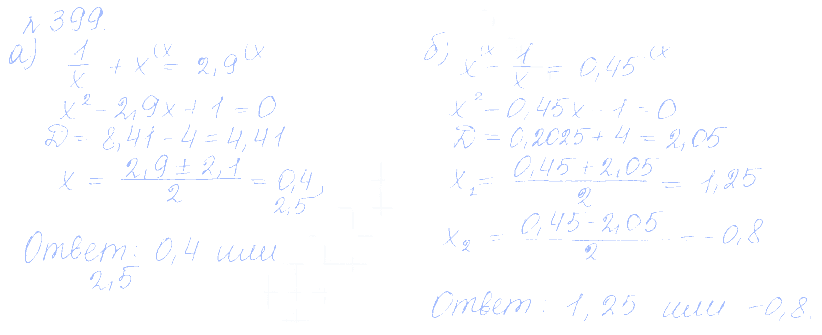 № 399.
а) 1/x + x(x = 2,9(x
x² - 2,9x + 1 = 0
D = 8,41 - 4 = 4,41
x = (2,9 ± 2,1)/2 = 0,4,
2,5
Ответ: 0,4 или
2,5
б) x(x - 1/x = 0,45(x
x² - 0,45x - 1 = 0
D = 0,2025 + 4 = 2,05
x₁ = (0,45 + 2,05)/2 = 1,25
x₂ = (0,45 - 2,05)/2 = -0,8
Ответ: 1,25 или -0,8.